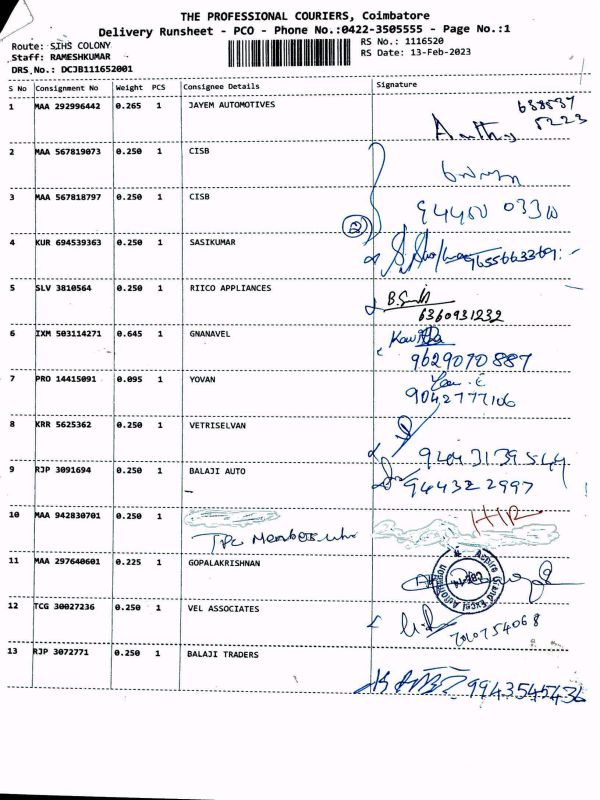 THE PROFESSIONAL COURIERS, Coimbatore
Delivery Runsheet - PCO - Phone No.:0422-3505555 - Page No.:1
Route: SIHS COLONY
RS No.: 1116520
Staff: RAMESHKUMAR
RS Date: 13-Feb-2023
DRS No.: DCJB111652001
S No Consignment No Weight PCS Consignee Details Signature
1 MAA 292996442 0.265 1 JAYEM AUTOMOTIVES
638537
5223
2 MAA 567819073 0.250 1 CISB
3 MAA 567818797 0.250 1 CISB
2
4 KUR 694539363 0.250 1 SASIKUMAR
9655663369
5 SLV 3810564 0.250 1 RIICO APPLIANCES
6360931232
6 IXM 503114271 0.645 1 GNANAVEL
9629070887
7 PRO 14415091 0.095 1 YOVAN
9042777106
8 KRR 5625362 0.250 1 VETRISELVAN
9 RJP 3091694 0.250 1 BALAJI AUTO
9443222997
10 MAA 942830701 0.250 1
11 MAA 297640601 0.225 1 GOPALAKRISHNAN
12 TCG 30027236 0.250 1 VEL ASSOCIATES
13 RJP 3072771 0.250 1 BALAJI TRADERS
9943545436